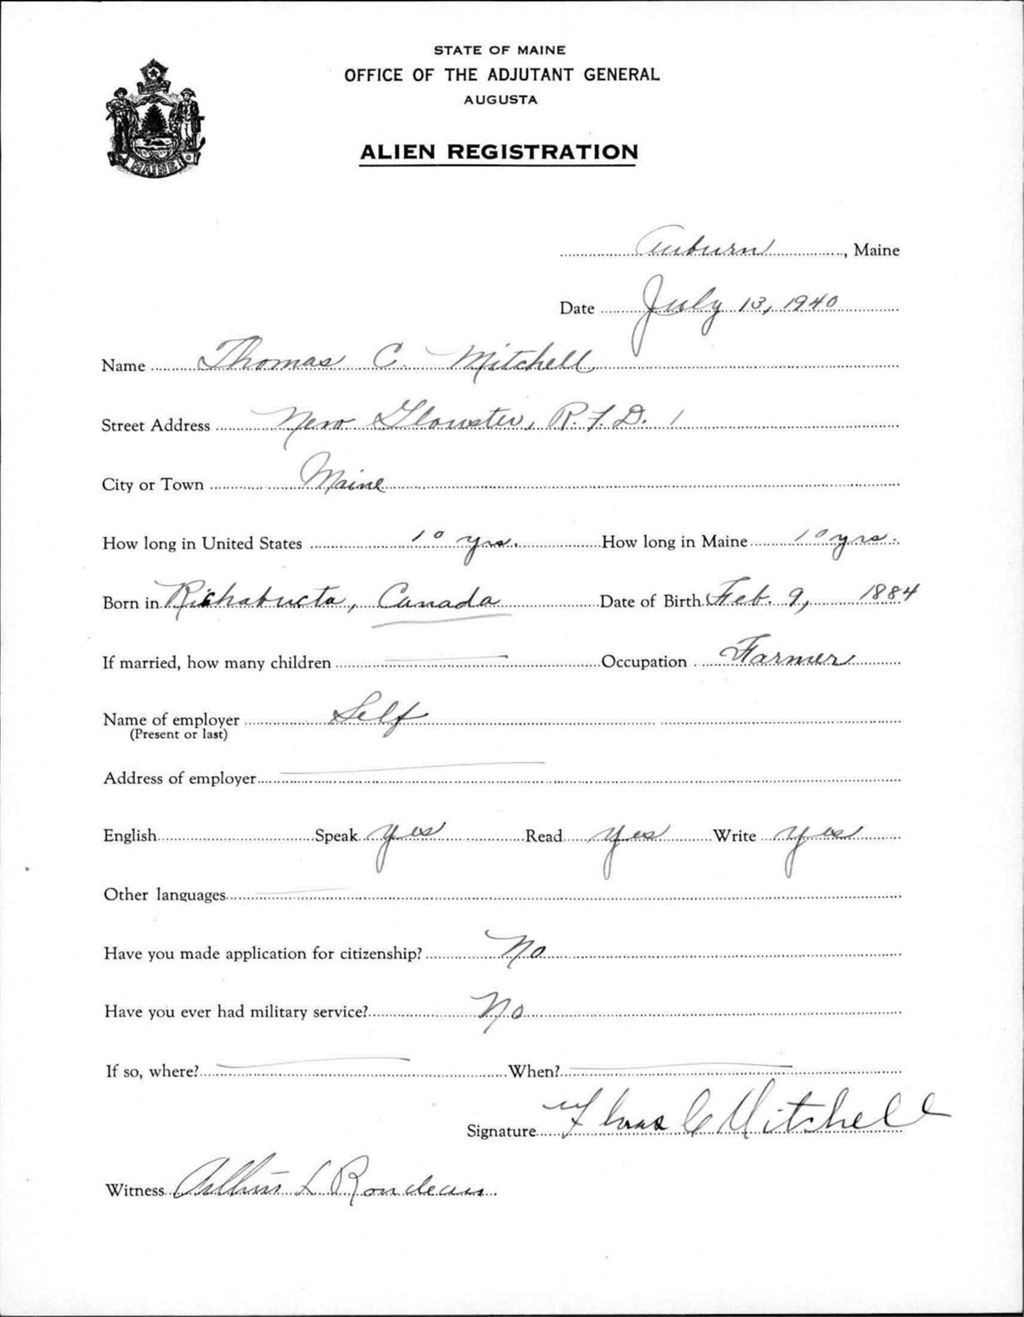 STATE OF MAINE
OFFICE OF THE ADJUTANT GENERAL
AUGUSTA
ALIEN REGISTRATION
MAINE
Auburn, Maine
Date July 13, 1940
Name Thomas C. Mitchell
Street Address New Glouster, R.F.D. 1
City or Town Maine
How long in United States 10 yrs. How long in Maine 10 yrs.
Born in Richabucto, Canada Date of Birth Feb. 9, 1884
If married, how many children — Occupation Farmer
Name of employer Self
(Present or last)
Address of employer —
English Speak Yes Read Yes Write Yes
Other languages —
Have you made application for citizenship? No
Have you ever had military service? No
If so, where? — When? —
Signature Thomas C Mitchell
Witness L Rondeau